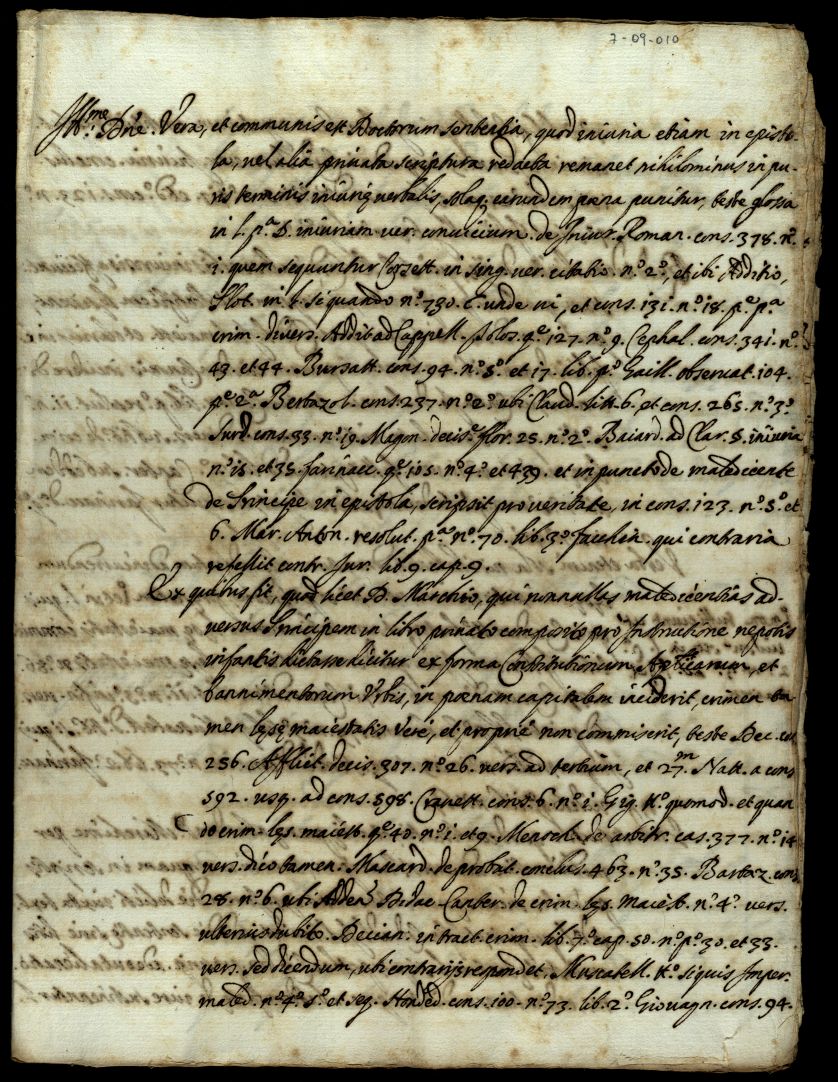 7-09-010
Ill.me Dñe. Vera, et communis est Doctorum sententia, quod iniuria etiam in episto
la, vel alia privata scriptura redacta remanet nihilominus in pu-
ris terminis iniurię verbalis, eiusdem pœna punitur, teste glossa
in l. p.a §. iniuriam ver. convicium de Iniur. Roman. cons. 378. n.o
i. quem sequuntur in sing. ver. citatio. n.o 2.o, et ibi Additio,
Plot. in l. si quando n.o 730. C. unde vi, et cons. 131. n.o 18. p.e p.a
crim. divers. Addit. ad Cappell. Tolos. q.e 127. n.o 9. Cephal. cons. 341. n.o
43. et 44. Bursatt. cons. 94. n.o 5.o et 17. lib. p.o Gaill. observat. 104.
p.e 2.a Bertazol. cons. 237. n.o 2.o ubi Claud. litt. 6. et cons. 265. n.o 3.o
Surd. cons. 33. n.o 19. Magon. decis.e flor. 25. n.o 2.o Baiard. ad Clar. §. iniuria
n.o 18. et 35. farinacc. q.e 105. n.o 4.o et 439. et in puncto de maledicente
de Principe in epistola, scripsit pro veritate, in cons. 123. n.o 5.o et
6. Mar. Anton. resolut. p.a n.o 70. lib. 3.o facchin. qui contraria
refellit contr. Iur. lib. 9. cap. 9.
Ex quibus fit, quod licet D. Marchio, qui nonnullas maledicentias ad-
versus Principem in libro privato composito pro Instructione nepotis
infantis dictasse dicitur ex forma Constitutionum, et
bannimentorum Urbis, in pœnam capitalem inciderit, crimen ta
men lęsę maiestatis veré, et proprié non commiserit, teste Dec. co
256. Afflict. decis. 307. n.o 26. vers. ad tertium, et 27.m Natt. a cons
592. usq. ad cons. 598. Cravett. cons. 6. n.o i. Gig. quomod. et quan
do crim. lęs. maiest. q.e 40. n.o i. et 9. Menoch. de arbitr. cas. 377. n.o 14
vers. dico tamen. Mascard. de probat. conclus. 463. n.o 35. Bartaz. cons
28. n.o 6. ubi Didac. Canter. de crim. lęs. maiest. n.o 4.o vers.
ulterius dubito. Decian. in tract. crim. lib. 7.o cap. 50. n.o p.o 30. et 33.
vers. sed dicendum, ubi contrarijs respondet. Muscatell. si quis Imper.
maled. n.o 4.o 5.o et seq. Honded. cons. 100. n.o 73. lib. 2.o Giovagn. cons. 94.